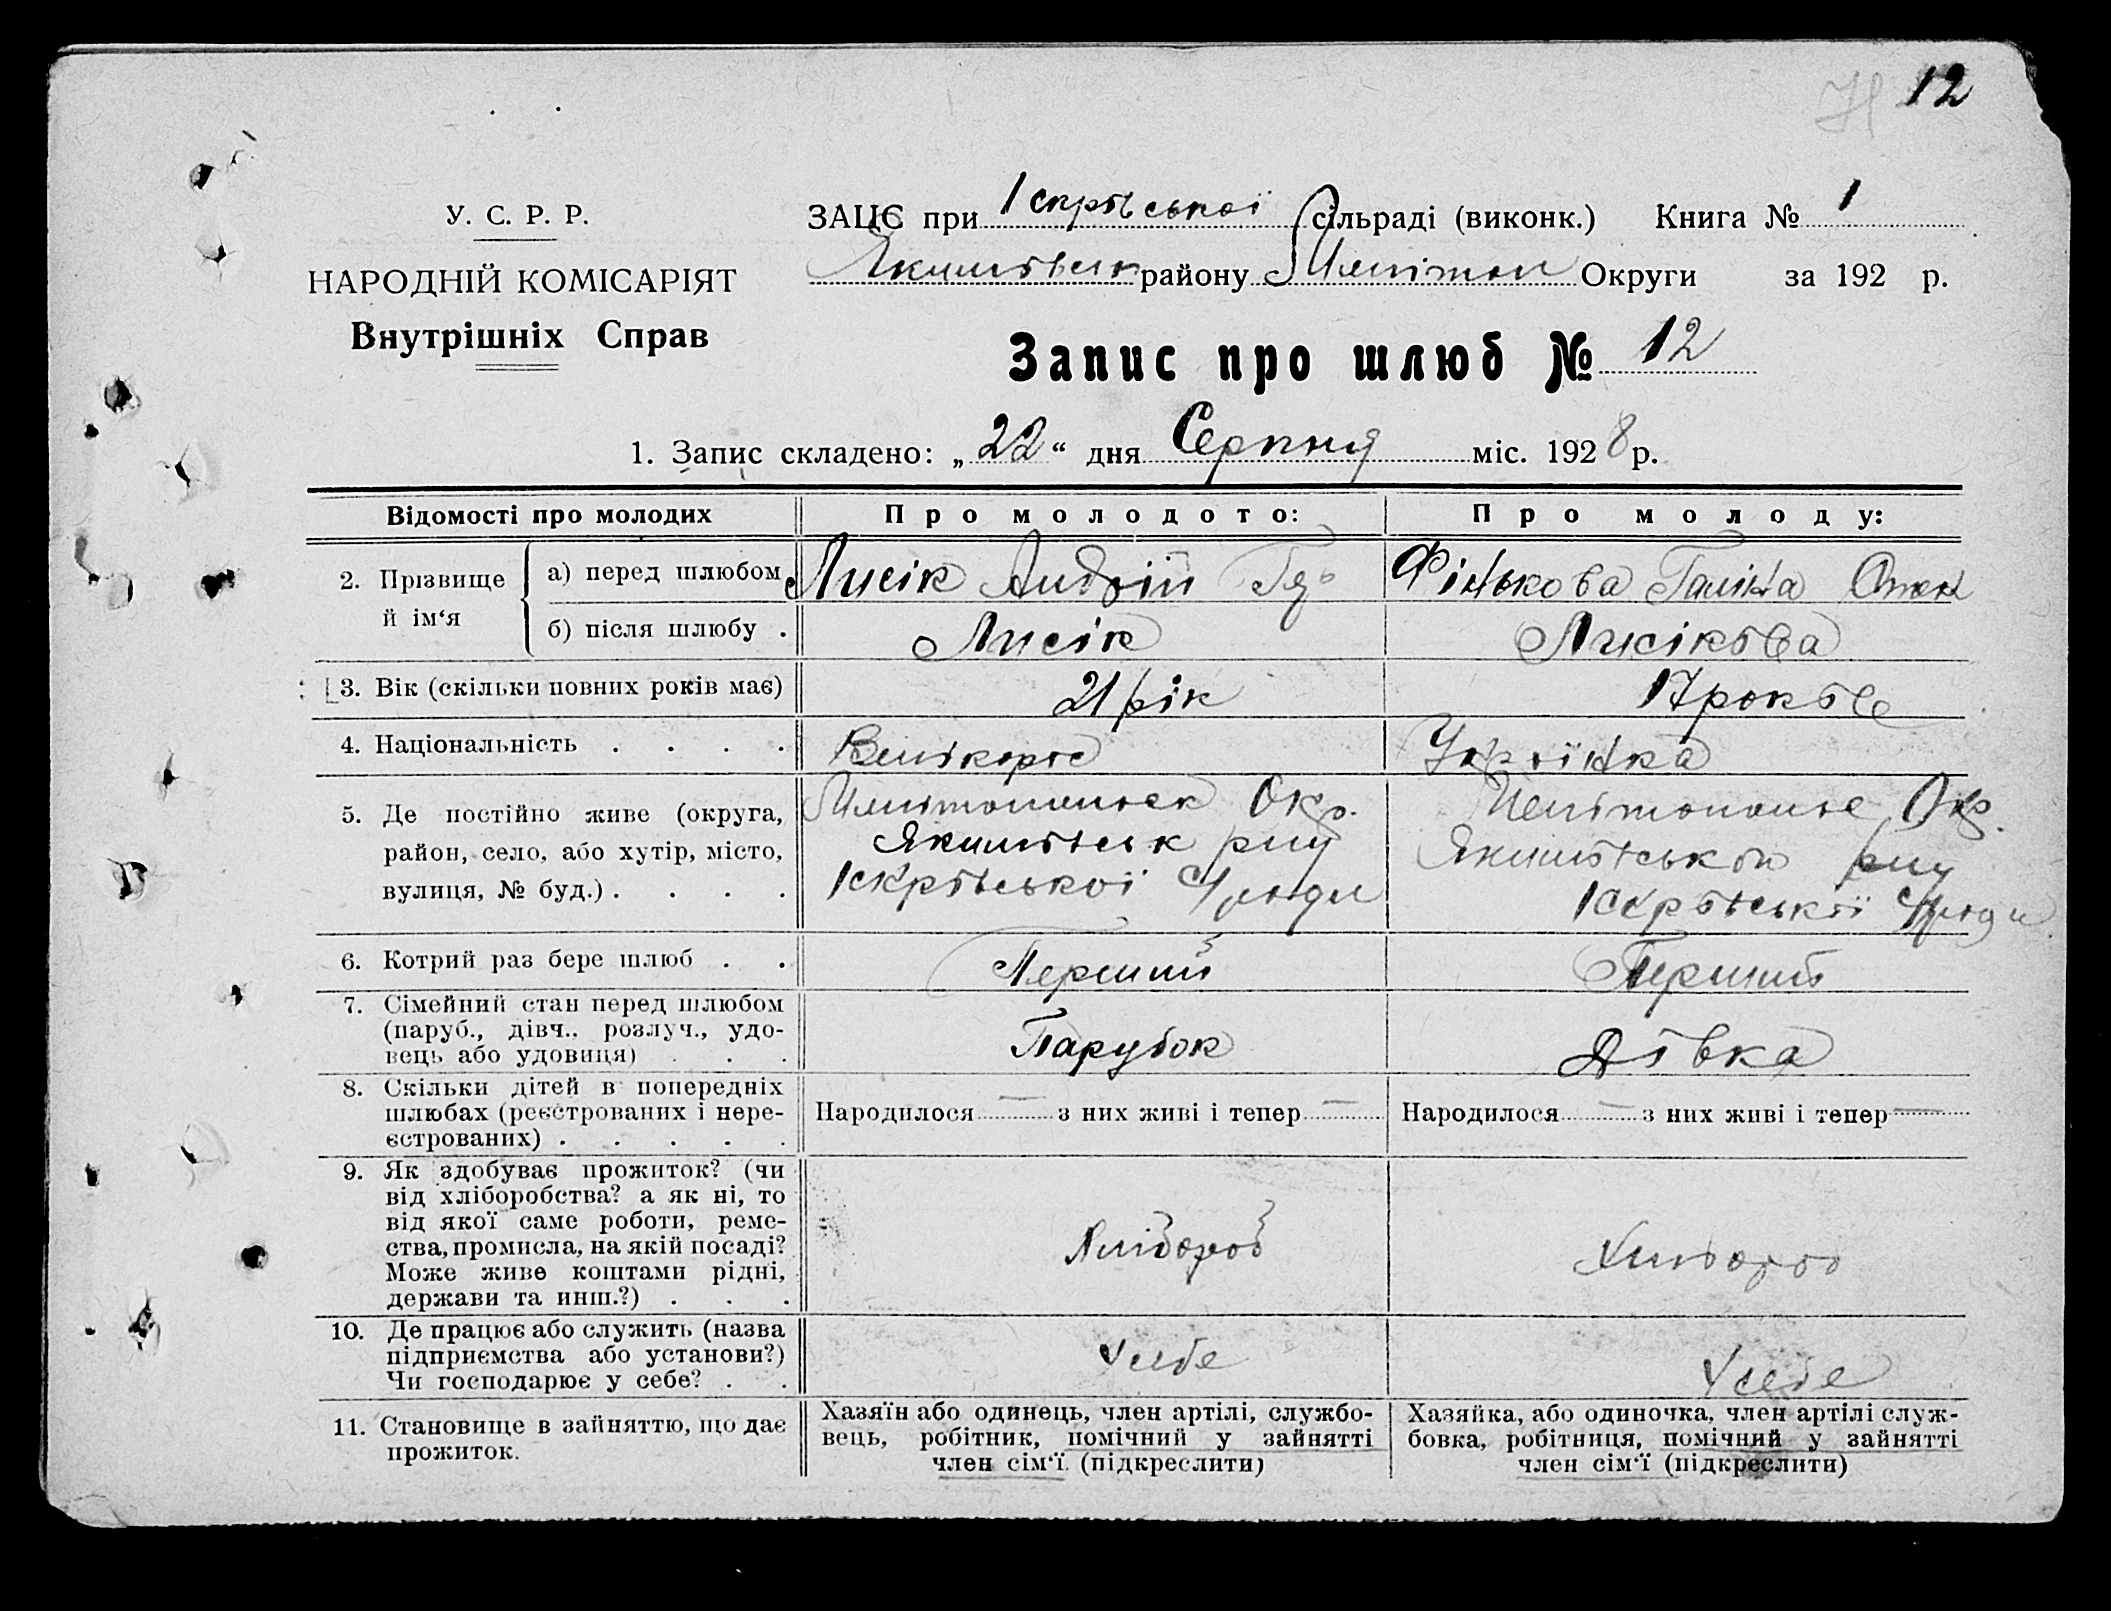 12
У. С. Р. Р.
НАРОДНІЙ КОМІСАРІЯТ
Внутрішніх Справ
ЗАЦС при Іскрівської сільраді (виконк.) Книга № 1
Якимівськ району Меліто Округи за 192 р.
Запис про шлюб № 12
1. Запис складено: „22“ дня Серпня міс. 1928 р.
Відомості про молодих
Про молодото:
Про молоду:
2. Прізвище й ім‘я
а) перед шлюбом
Лисік Андрій
Фінькова Галіна
б) після шлюбу .
Лисік
Лисікова
3. Вік (скільки повних років має)
21 рік
17 років
4. Національність . . . .
Велікорос
Українка
5. Де постійно живе (округа,
район, село, або хутір, місто,
вулиця, № буд.) . . . .
Окр.
Якимівськ
Іскрівської
Окр.
Якимівської
Іскрівської
6. Котрий раз бере шлюб . .
Перший
Перший
7. Сімейний стан перед шлюбом
(паруб., дівч., розлуч., удо-
вець або удовиця) . . .
Парубок
Дівка
8. Скільки дітей в попередніх
шлюбах (реєстрованих і нере-
єстрованих) . . . . .
Народилося — з них живі і тепер —
Народилося — з них живі і тепер —
9. Як здобуває прожиток? (чи
від хліборобства? а як ні, то
від якої саме роботи, реме-
ства, промисла, на якій посаді?
Може живе коштами рідні,
держави та инш.?) . . .
Хлібороб
Хлібороб
10. Де працює або служить (назва
підприємства або установи?)
Чи господарює у себе? . .
У себе
У себе
11. Становище в зайняттю, що дає
прожиток.
Хазяїн або одинець, член артілі, службо-
вець, робітник, помічний у зайнятті
член сім‘ї. (підкреслити)
Хазяйка, або одиночка, член артілі служ-
бовка, робітниця, помічний у зайнятті
член сім‘ї (підкреслити)